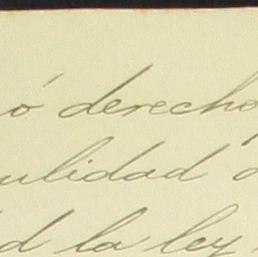 ó derecho
ulidad
d la ley